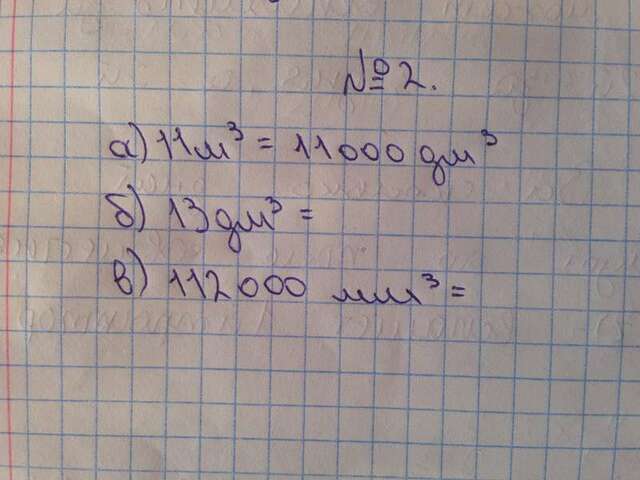 №2.
а) 11м³ = 11000 дм³
б) 13дм³ =
в) 112000 мм³ =